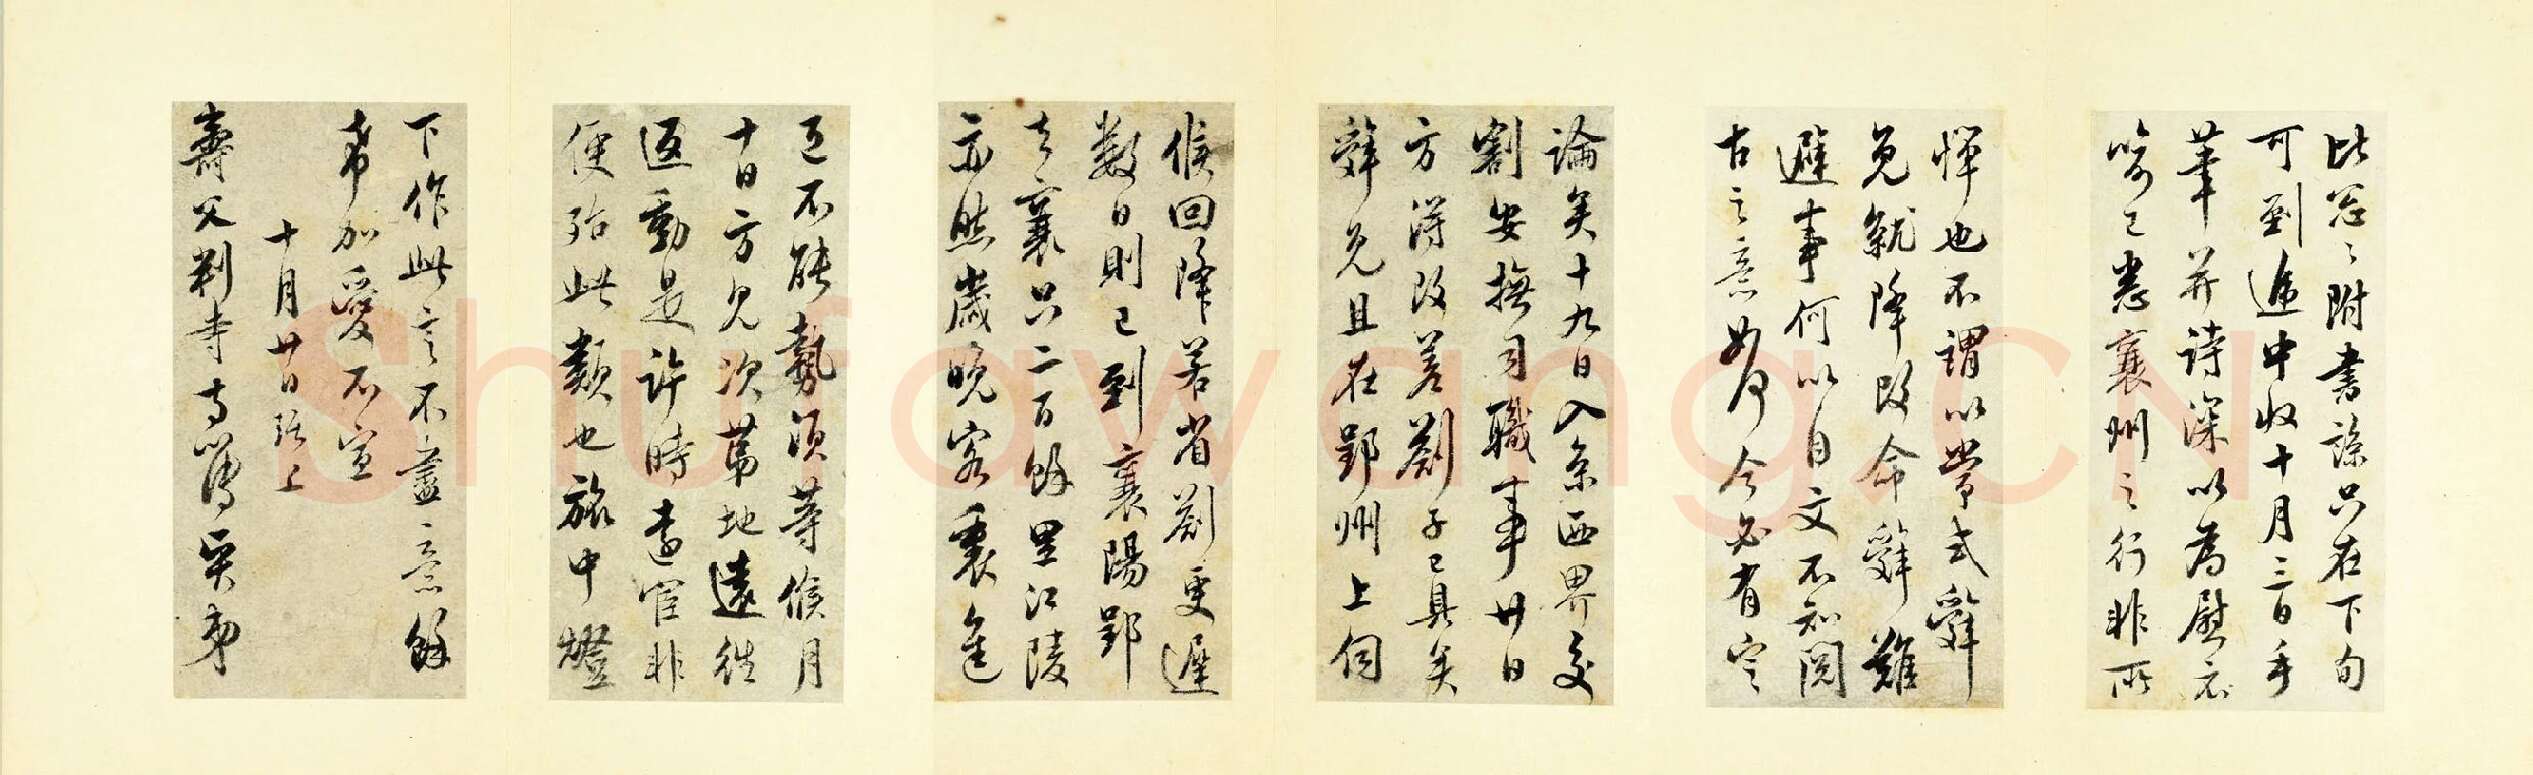 比忩々附書諒只在下旬
可到遞中收十月三日手
筆并詩深以為慰示
喻已悉襄州之行非所
憚也不謂以常式辭
免就降改命辭難
避事何以自文不知閤
古之意如何今必有定
論矣十九日入京西界交
割安撫司職事廿日
方得改差劄子已具奏
辭免且在郢州上伺
候回降若省劄更遲
數日則已到襄陽郢
去襄只二百餘里江陵
亦然歲晚客裏進
退不能勢須等候月
十日方見次第地遠往
返動是許時遠宦非
便殆此類也旅中燈
下作此言不盡意餘
希加愛不宣
十月廿日 上
壽父判寺寺簿賢弟
Shufawang.CN